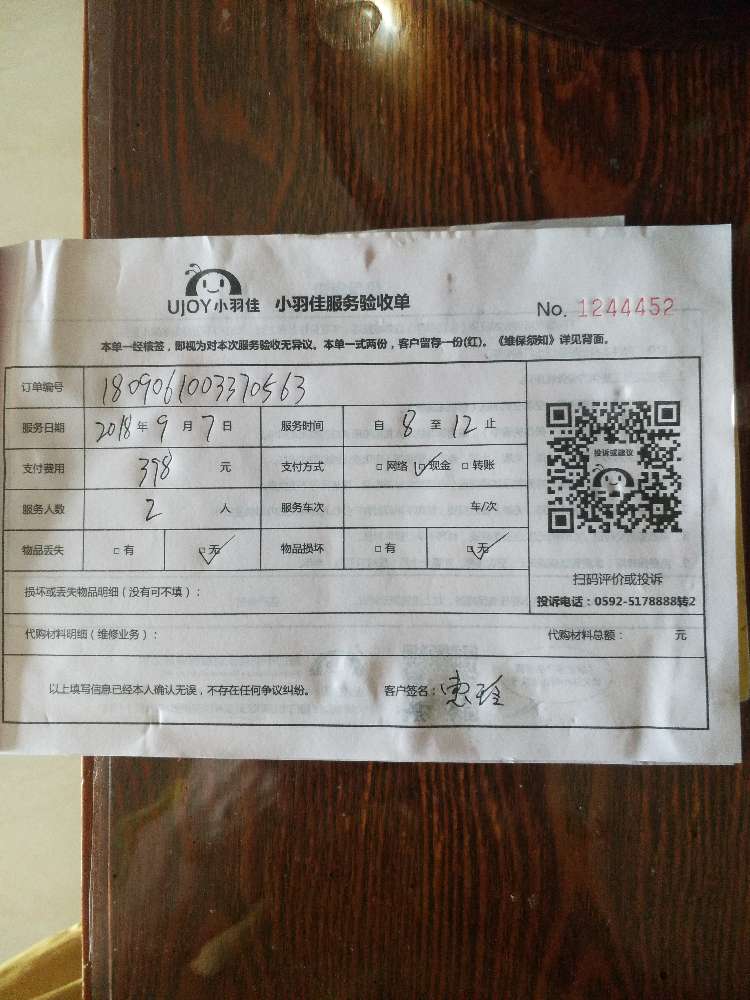 UJOY小羽佳 小羽佳服务验收单
No. 1244452
本单一经核签，即视为对本次服务验收无异议。本单一式两份，客户留存一份(红)。《维保须知》详见背面。
订单编号 1809061003370563
服务日期 2018年9月7日 服务时间 自8至12止
支付费用 398 元 支付方式 □网络 ☑现金 □转账
服务人数 2 人 服务车次 车/次
物品丢失 □有 ☑无 物品损坏 □有 ☑无
投诉或建议
扫码评价或投诉
投诉电话：0592-5178888转2
损坏或丢失物品明细（没有可不填）：
代购材料明细（维修业务）： 代购材料总额： 元
以上填写信息已经本人确认无误，不存在任何争议纠纷。 客户签名：惠玲